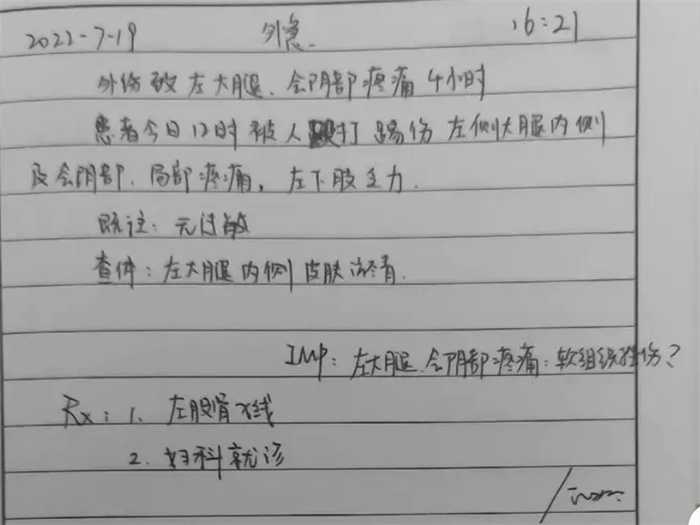 2022-7-19 外急. 16:21
外伤致左大腿、会阴部疼痛4小时
患者今日12时被人打踢伤左侧大腿内侧
及会阴部.局部疼痛,左下肢乏力.
既往:无过敏
查体:左大腿内侧皮肤淤青.
IMP:左大腿.会阴部疼痛:软组织挫伤?
Rx:1.左股骨X线
2.妇科就诊